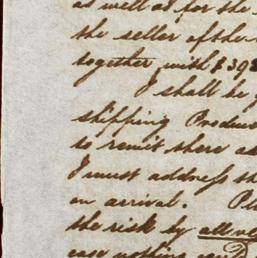 as well as for the
the seller of the
together with $ 39
I shall be
shipping Produc
to remit there as
I must address th
on arrival. Pl
the risk by all ve
case nothing could